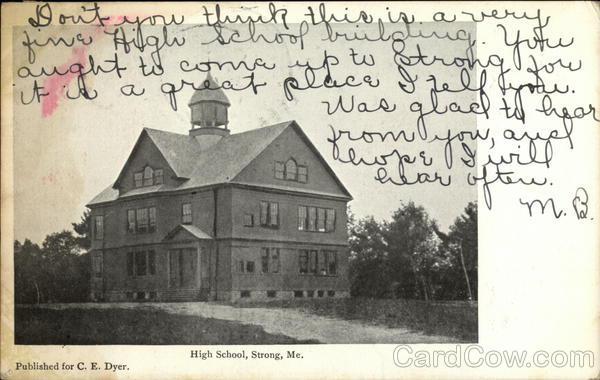 Don't you think this is a very
fine High School building. You
aught to come up to Strong for
it is a great place I tell you.
Was glad to hear
from you, and
I hope I will
hear often.
M. B.
High School, Strong, Me.
Published for C. E. Dyer.
CardCow.com